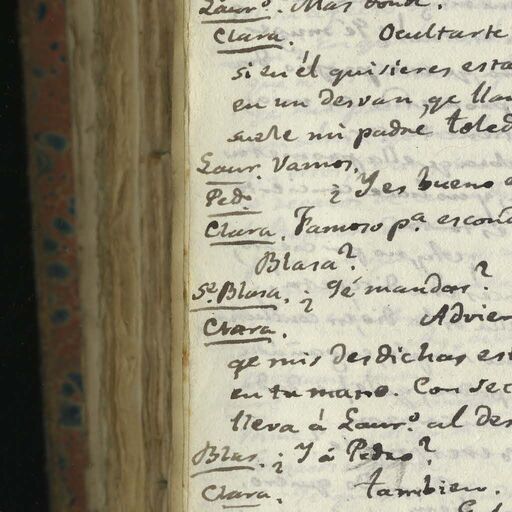 Laur.º Mas donde.
Clara. Ocultarte
si en él quisieres esta
en un desvan, qe llam
suele mi padre toled
Laur. Vamos.
Ped.º ¿Y es bueno
Clara. Famoso p.a escond
Blasa?
S.e Blasa. ¿Qé mandas?
Clara. Advier
qe mis desdichas est
en tu mano. Con sec
lleva á Laur.º al des
Blas. ¿Y á Pedro?
Clara. Tambien.